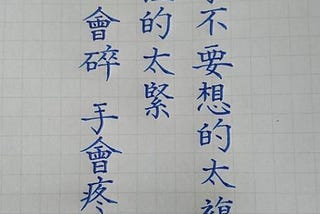 不要想的太
的太緊
會碎 手會疼